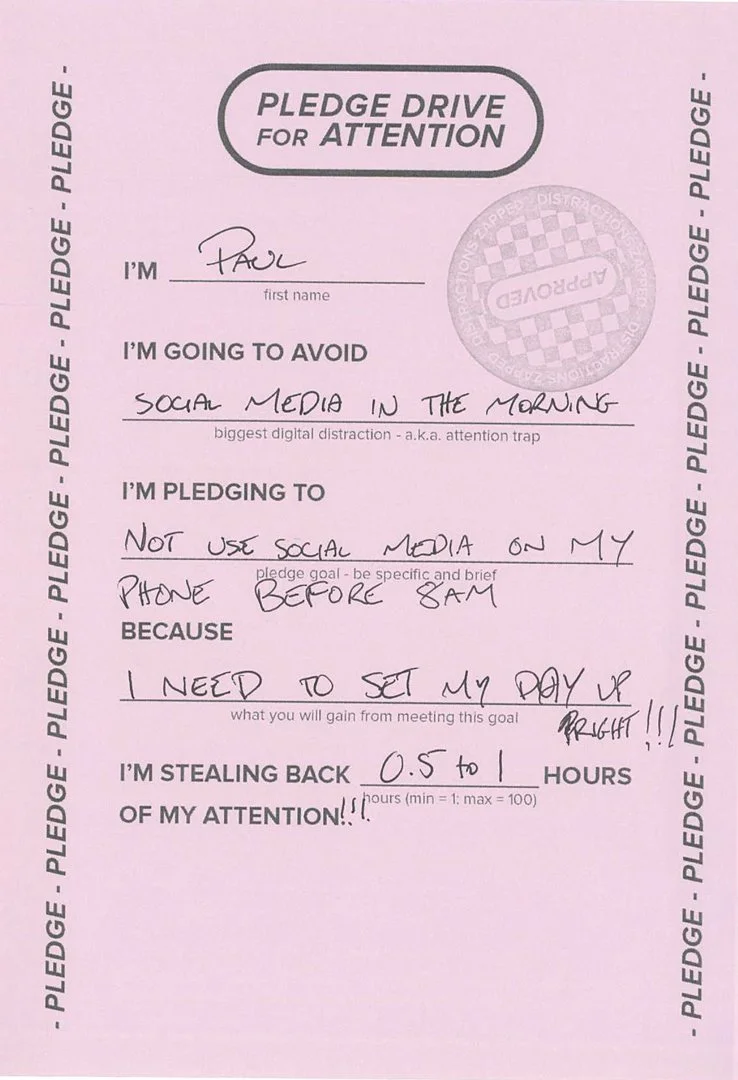 PLEDGE DRIVE
FOR ATTENTION
DISTRACTIONS ZAPPED - DISTRACTIONS ZAPPED
APPROVED
I'M PAUL
first name
I'M GOING TO AVOID
SOCIAL MEDIA IN THE MORNING
biggest digital distraction - a.k.a. attention trap
I'M PLEDGING TO
NOT USE SOCIAL MEDIA ON MY
pledge goal - be specific and brief
PHONE BEFORE 8AM
BECAUSE
I NEED TO SET MY DAY UP
what you will gain from meeting this goal
RIGHT!!!
I'M STEALING BACK 0.5 to 1 HOURS
hours (min = 1; max = 100)
OF MY ATTENTION!!!.
- PLEDGE - PLEDGE - PLEDGE - PLEDGE - PLEDGE - PLEDGE - PLEDGE -
- PLEDGE - PLEDGE - PLEDGE - PLEDGE - PLEDGE - PLEDGE - PLEDGE -